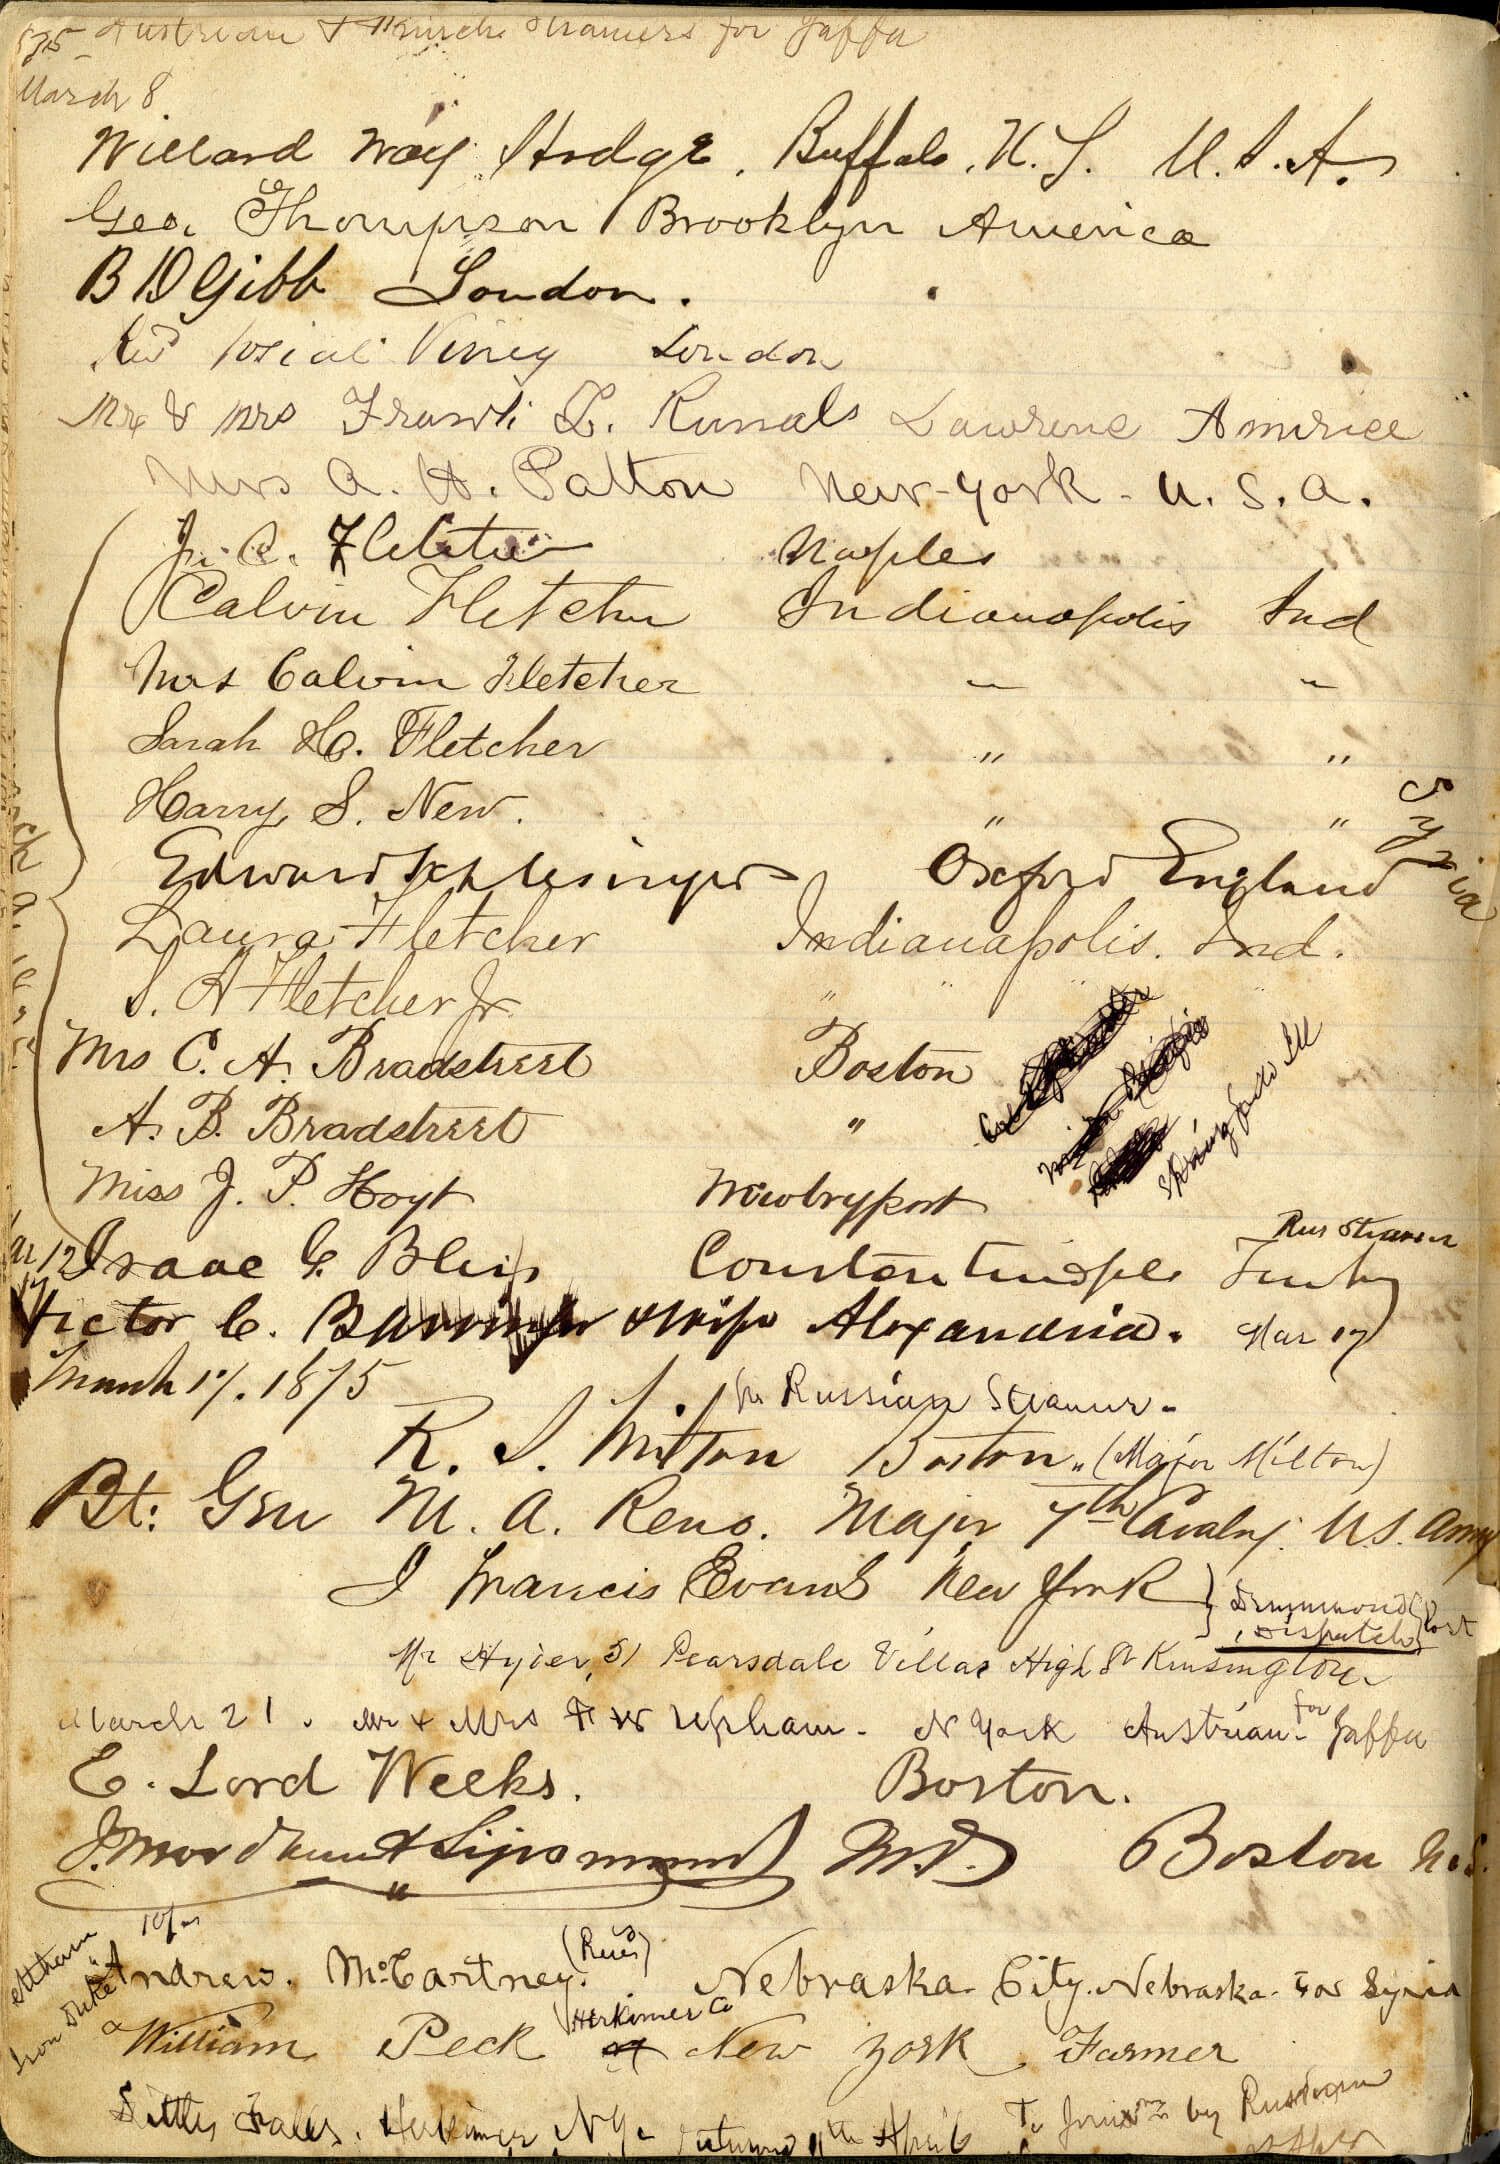 1875 Austrian & French Steamers for Jaffa
March 8
Willard Way Hodge, Buffalo, N.Y. U.S.A.
Geo. Thompson Brooklyn America
B D Gibb London.
Revd Josiah Viney London
Mr & Mrs Frank L. Runals Lawrence America
Mrs A. H. Patton New-York - U.S.A.
J. C. Fletcher Naples
Calvin Fletcher Indianapolis Ind
Mrs Calvin Fletcher " "
Sarah H. Fletcher " "
Harry S. New. " "
Syria
Edward Schlesinger Oxford England
Laura Fletcher Indianapolis. Ind.
S. A Fletcher Jr. " "
Mrs C. A. Bradstreet Boston
A. B. Bradstreet "
Springfield Ill
Miss J. P. Hoyt Newburyport
Rus Steamer
Mar 12 Isaac G. Bliss Constantinople Turkey
17 Victor C. Barringer & wife Alexandria. Mar 17
March 17. 1875
for Russian Steamer.
R. S. Milton Boston. (Major Milton)
Bt: Gen M. A. Reno. Major 7th Cavalry. U.S. Army
J Francis Evans New York } Drummond Port
Dispatch
Mr Hyder, 51 Pearsdale Villas High St Kensington
March 21. Mr & Mrs F W Upham. N York Austrian for Jaffa
E. Lord Weeks. Boston.
J. Mordaunt Sigismund M.D. Boston
Andrew. McCartney. (Revd) Nebraska City. Nebraska. For Syria
William Peck Herkimer Co New York Farmer
Little Falls. Herkimer N.Y. returned 11th April To by Russian